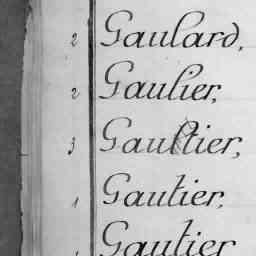 2 Gaulard,
2 Gaulier,
3 Gaultier,
1 Gautier,
1 Gautier